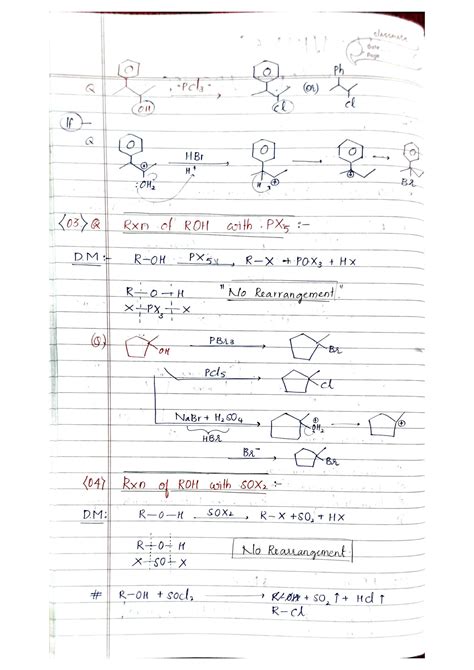 classmate
Date
Page
Q PCl3 (or) Ph
OH Cl Cl
If —
Q HBr
H+
:OH2 H Br
<03> Q Rxn of ROH with PX5 :-
DM:- R-OH PX5 R-X + POX3 + HX
R-O-H "No Rearrangement"
X-PX3-X
(Q) OH PBr3 Br
PCl5 Cl
NaBr + H2SO4 OH2
HBr
Br- Br
<04> Rxn of ROH with SOX2 :-
DM: R-O-H SOX2 R-X + SO2 + HX
R-O-H No Rearrangement
X-SO-X
# R-OH + SOCl2 + SO2↑ + HCl↑
R-Cl